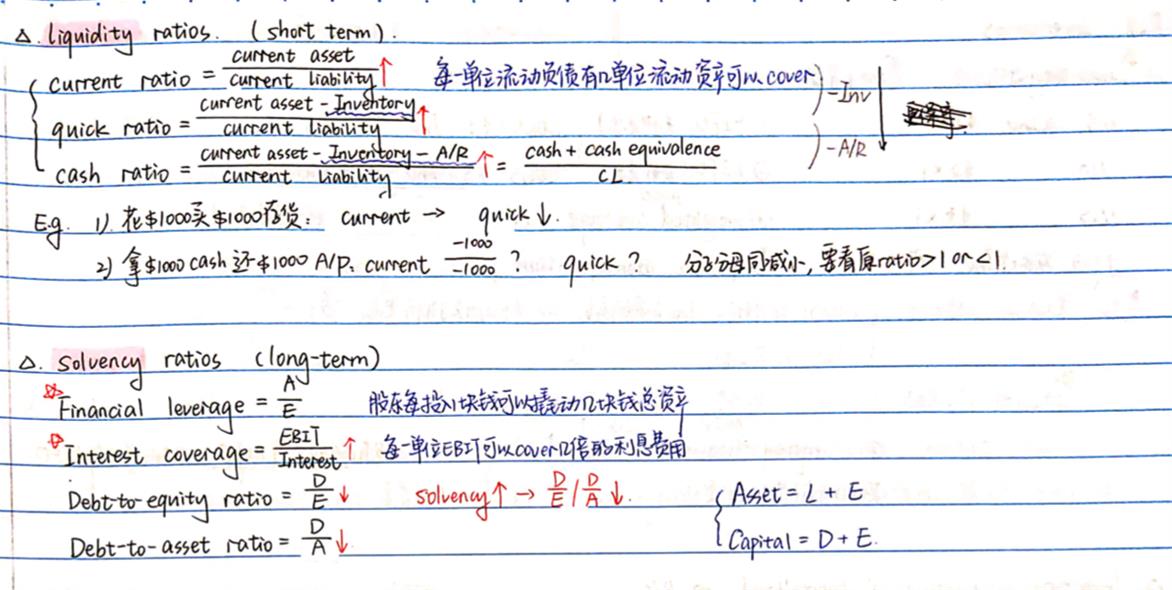 △. liquidity ratios. (short term).
current ratio = current asset / current liability ↑ 每一单位流动负债有几单位流动资产可以cover
quick ratio = current asset - Inventory / current liability ↑ ) -Inv
cash ratio = current asset - Inventory - A/R / current liability ↑ = cash + cash equivalence / CL ) -A/R
E.g. 1) 花$1000买$1000存货: current → quick ↓.
2) 拿$1000 cash 还$1000 A/P. current -1000 / -1000 ? quick ? 分子分母同减小, 要看原ratio>1 or <1.
△. Solvency ratios (long-term)
Financial leverage = A / E 股东每投入1块钱可以撬动几块钱总资产
Interest coverage = EBIT / Interest ↑ 每一单位EBIT可以cover几倍的利息费用
Debt-to-equity ratio = D / E ↓ solvency↑ → D/E / D/A ↓. Asset = L + E
Debt-to-asset ratio = D / A ↓ Capital = D + E.